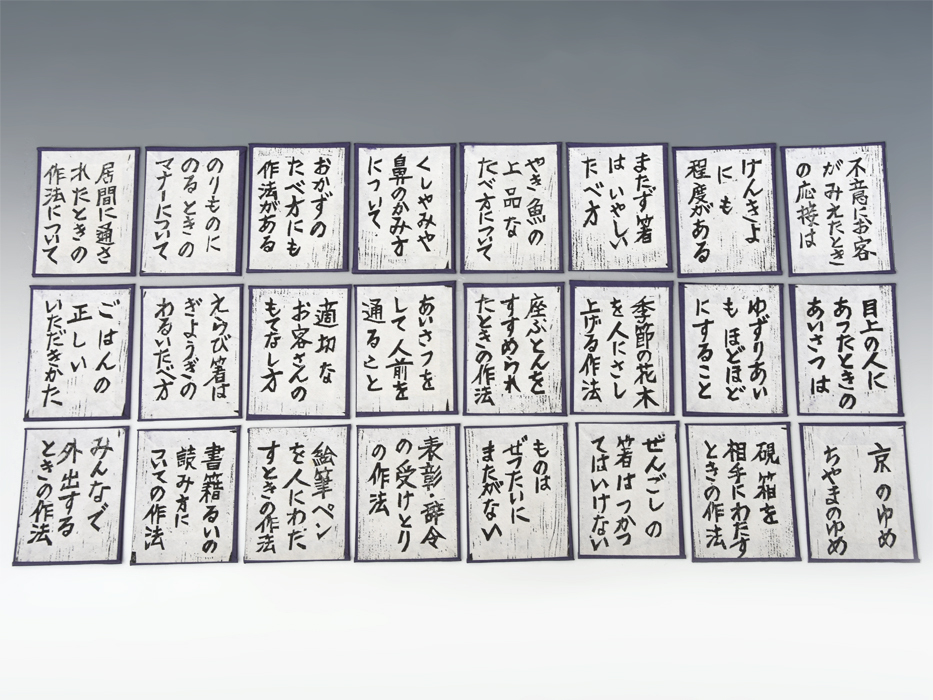 不意にお客
がみえたとき
の応接は
けんきよ
にも
程度がある
またず箸
はいやしい
たべ方
やき魚の
上品な
たべ方について
くしやみや
鼻のかみ方
について
おかずの
たべ方にも
作法がある
のりものに
のるときの
マナーについて
居間に通さ
れたときの
作法について
目上の人に
あつたときの
あいさつは
ゆずりあい
もほどほど
にすること
季節の花木
を人にさし
上げる作法
座ぶとんを
すすめられ
たときの作法
あいさつを
して人前を
通ること
適切な
お客さんの
もてなし方
えらび箸は
ぎようぎの
わるいたべ方
ごはんの
正しい
いただきかた
京のゆめ
ちやまのゆめ
硯箱を
相手にわたす
ときの作法
ぜんごしの
箸はつかつ
てはいけない
ものは
ぜつたいに
またがない
表彰・辞令
の受けとり
の作法
絵筆ペン
を人にわた
すときの作法
書籍るいの
読み方に
ついての作法
みんなで
外出する
ときの作法